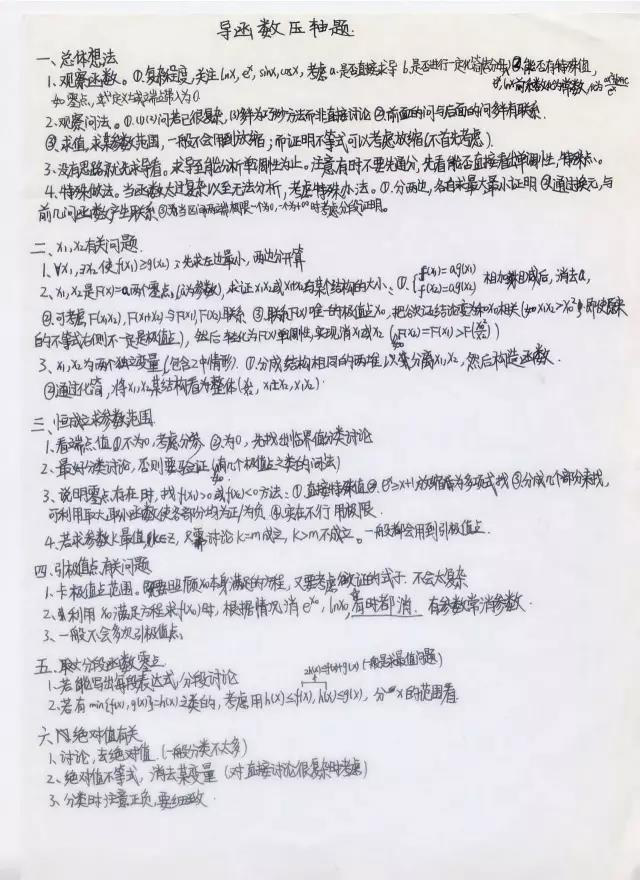 导函数压轴题.
一、总体想法
1、观察函数。①.复杂程度,关注lnx,eˣ,sinx,cosx,考虑a.是否直接求导 b.是否进行一定化简 ②.能否有特殊值,
如零点,或定义域端点带入为0.
2、观察问法。①.(1)(2)问若已很复杂,(3)多为巧妙方法而非直接讨论②.前面的问与后面的问多有联系.
③.求值,求某参数范围,一般不会用到放缩;而证明不等式可以考虑放缩(不首先考虑).
3、没有思路就先求导看。求导至能分析单调性为止。注意有时不要先通分,先看能否直接看出单调性,特殊点。
4、特殊做法。当函数太过复杂以至无法分析,考虑特殊办法。①.分两边,各自求最大最小证明②.通过换元,与
前几问函数产生联系③.若当区间两端极限一个为0,一个为+∞时考虑分段证明。
二、x₁,x₂有关问题.
1、∀x₁,∃x₂使f(x₁)≥g(x₂):先求左边最小,两边分开算
2、x₁,x₂是F(x)=a两个零点,(a为参数),求证x₁x₂或x₁+x₂与某个结构的大小:①.{f(x₁)=ag(x₁) f(x₂)=ag(x₂) 相加或相减后,消去a,
②.可考虑F(x₁x₂),F(x₁+x₂)与F(x₁),F(x₂)联系 ③.联系F(x)唯一的极值点x₀,把欲证结论变为和x₀相关(如x₁x₂>x₀²),即使原来
的不等式右侧不一定是极值点),然后转化为F(x)单调性,实现消x₁或x₂
3、x₁,x₂为两个独立变量(包含2中情形).①.分成结构相同的两堆,以等分离x₁,x₂,然后构造函数.
②.通过化简,将x₁,x₂某结构看为整体
三、恒成立求参数范围
1、看端点值①.不为0,考虑分参 ②.为0,先找出临界值分类讨论
2、最好分类讨论,否则要验证(有几个极值点之类的问法)
3、说明零点存在时,找f(x₁)>0或f(x₂)<0方法:①.直接特殊值②.eˣ≥x+1放缩后为多项式找③.分成几个部分来找,
可利用取大取小函数使各部分均为正/为负 ④.实在不行用极限.
4、若求参数k最值,k∈Z,只需讨论k=m成立,k>m不成立。一般都会用到引极值点.
四、引极值点有关问题
1、卡极值点范围。既要照顾x₀本身满足的方程,又要考虑欲证的式子.不会太复杂
2、利用x₀满足方程求f(x₀)时,根据情况消e^x₀,lnx₀,有时都消.有参数常消参数.
3、一般不会多次引极值点.
五、取大分段函数零点
2h(x)≤f(x)+g(x)(一般是求最值问题)
1、若能写出每段表达式,分段讨论
2、若有min{f(x),g(x)}=h(x)之类的,考虑用h(x)≤f(x),h(x)≤g(x),分x的范围看.
六、绝对值有关
1、讨论,去绝对值.(一般分类不太多)
2、绝对值不等式,消去某变量(对直接讨论很复杂时考虑)
3、分类时注意正负,要细致.